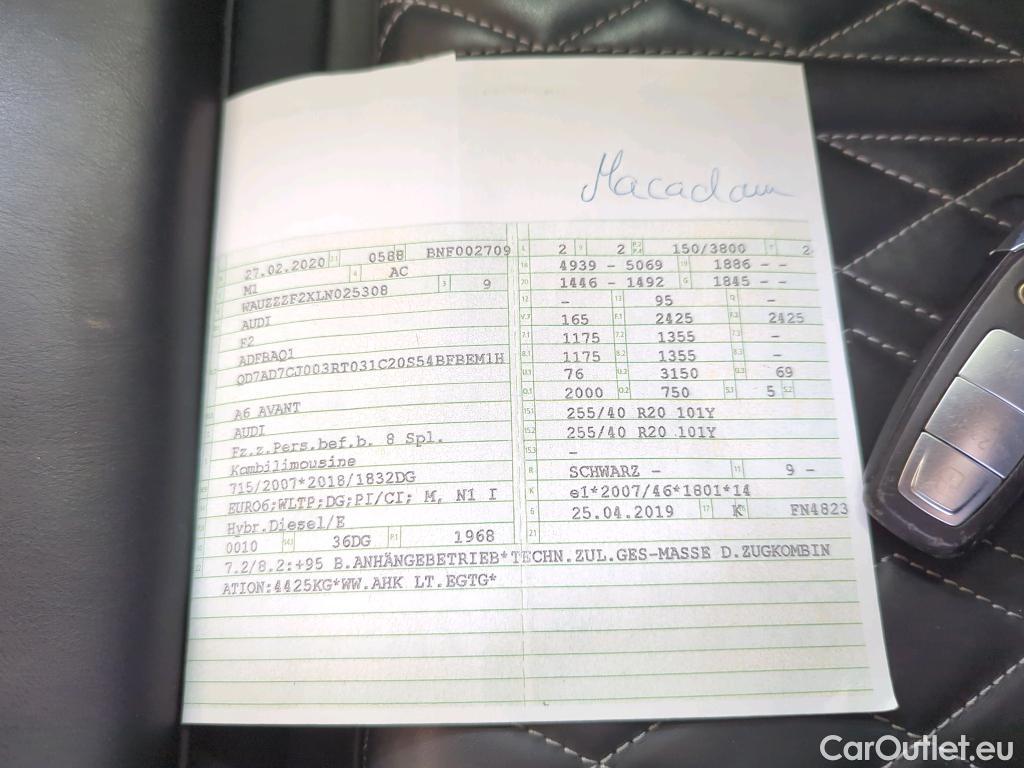 Macadam
27.02.2020 0588 BNF002709
M1 AC
WAUZZZF2XLN025308 9
AUDI
F2
ADFBAQ1
QD7AD7CJ003RT031C20S54BFBEM1H
A6 AVANT
AUDI
Fz.z.Pers.bef.b. 8 Spl.
Kombilimousine
715/2007*2018/1832DG
EURO6;WLTP;DG;PI/CI; M, N1 I
Hybr.Diesel/E
0010 14.1 36DG P.1 1968
L 2 9 2 P.2 150/3800 T 2
18 4939 - 5069 19 1886 - -
20 1446 - 1492 G 1845 - -
12 - 13 95 Q -
V.7 165 F.1 2425 F.2 2425
7.1 1175 7.2 1355 7.3 -
8.1 1175 8.2 1355 8.3 -
U.1 76 U.2 3150 U.3 69
O.1 2000 O.2 750 S.1 5 S.2
15.1 255/40 R20 101Y
15.2 255/40 R20 101Y
15.3 -
R SCHWARZ - 11 9 -
K e1*2007/46*1801*14
6 25.04.2019 17 K 16 FN4823
21
22 7.2/8.2:+95 B.ANHÄNGEBETRIEB*TECHN.ZUL.GES-MASSE D.ZUGKOMBIN
ATION:4425KG*WW.AHK LT.EGTG*
CarOutlet.eu